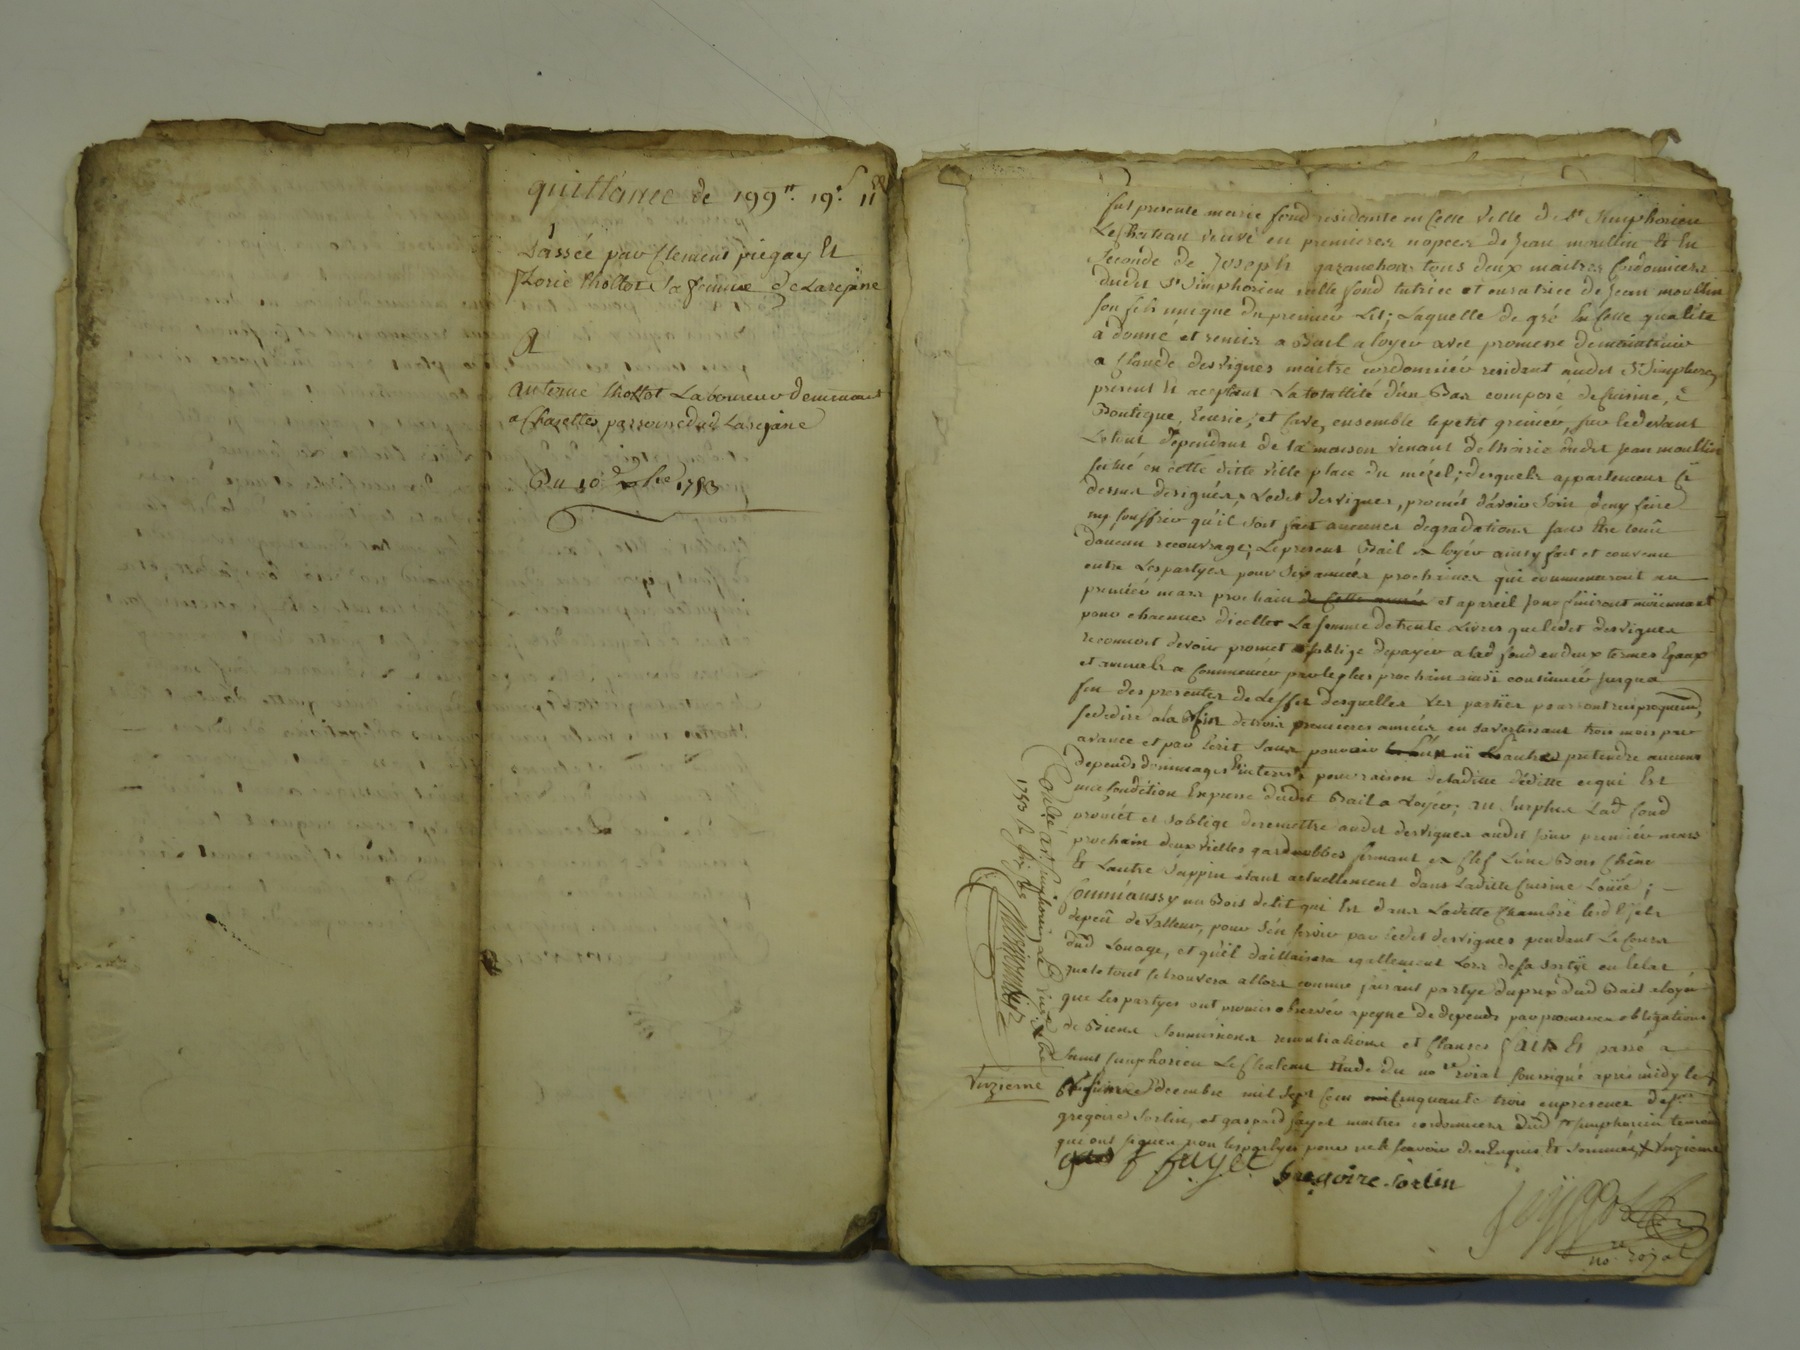 quittance de 199ᵗᵗ. 19ˢ. 11ᵈ
Passée par Clement piegay Et
florie thollot sa femme de Larejane
A
antoine thollot Laboureur demeurant
a Chazettes parroisse dud. Larejane
Du 10 Xbre 1753
fut presente marie fond residente en Cette Ville de St Simphorien
Le Chateau veuve en premieres nopces de Jean moullin Et En
Seconde de Joseph garanchon tous deux maitres Cordonniers
dudit St Simphorien jcelle fond tutrice et curatrice de Jean moullin
son fils unique du premier Lit; Laquelle de gré En Cette qualité
a donné et remis a Bail a loyer avec promesse de maintenir
a Claude desvignes maitre cordonnier residant audit St Simphorien
present Et aceptant La totallité d'un Bas composé de Cuisine,
Boutique, Ecurie, et Cave, ensemble le petit grenier, sur le devant
Le tout dependant de la maison venant de l'hoirie dudit Jean moullin
scitué en cette ditte ville place du mézel; desquels appartemens cy
dessus designés, Ledit desvignes, promet d'avoir soin d'en y faire
ny souffrir qu'il soit fait aucunes degradations sans être tenu
d'aucun recouvrage; Le present Bail a loyer ainsy fait et convenu
entre Les partyes pour six années prochaines qui commenceront au
premier mars prochain de Cette année et a pareil jour finiront moiennant
pour chacunes d'icelles La somme de trente Livres que ledit desvignes
reconnoit devoir promet s'oblige de payer a lad. fond en deux termes Egaux
et annuels a Commencer
fin des presentes de L'effet desquelles Les parties pourront reciproquemt.
se dedire a la fin de trois premieres années en s'avertissant trois mois par
avance et par Ecrit sans pouvoir ni Les autres pretendre aucuns
depends dommages Interets pour raison de ladite déditte ce qui Est
une Condition Expresse dudit Bail a Loyer; au surplus Lad. fond
promet et s'oblige de remettre audit desvignes audit jour premier mars
prochain deux vielles garderobbes fermant a Clef L'une Bois Chêne
Et L'autre sappin etant actuellement dans Laditte Cuisine Louée;
Comme aussy un Bois de lit qui Est dans Laditte Chambre
de peu de valleur, pour s'en servir par ledit desvignes pendant Le Cours
dud. Louage, et qu'il d'aillaissera egallement Lors de sa sortye en l'etat
que le tout se trouvera allors comme faisant partye du prix dud. Bail a loyer
que Les partyes ont promis observer a peyne de depends par promesses obligations
de Biens soumissions renontiations et Clauses fait Et passé a
Saint Simphorien Le Chateau Etude du no.re roial soussigné après midy le
decembre mil sept Cent Cinquante trois en presence de
gregoire sorlin, et gaspard fayet maitres cordonniers dud. St Simphorien temoins
qui ont signé non les partyes pour ne le scavoir de ce Enquis Et sommés, X Unzieme
Unzieme
gas f fayet gregoire sorlin
no.re royal
Con.lé a St. Simphorien Le
1753